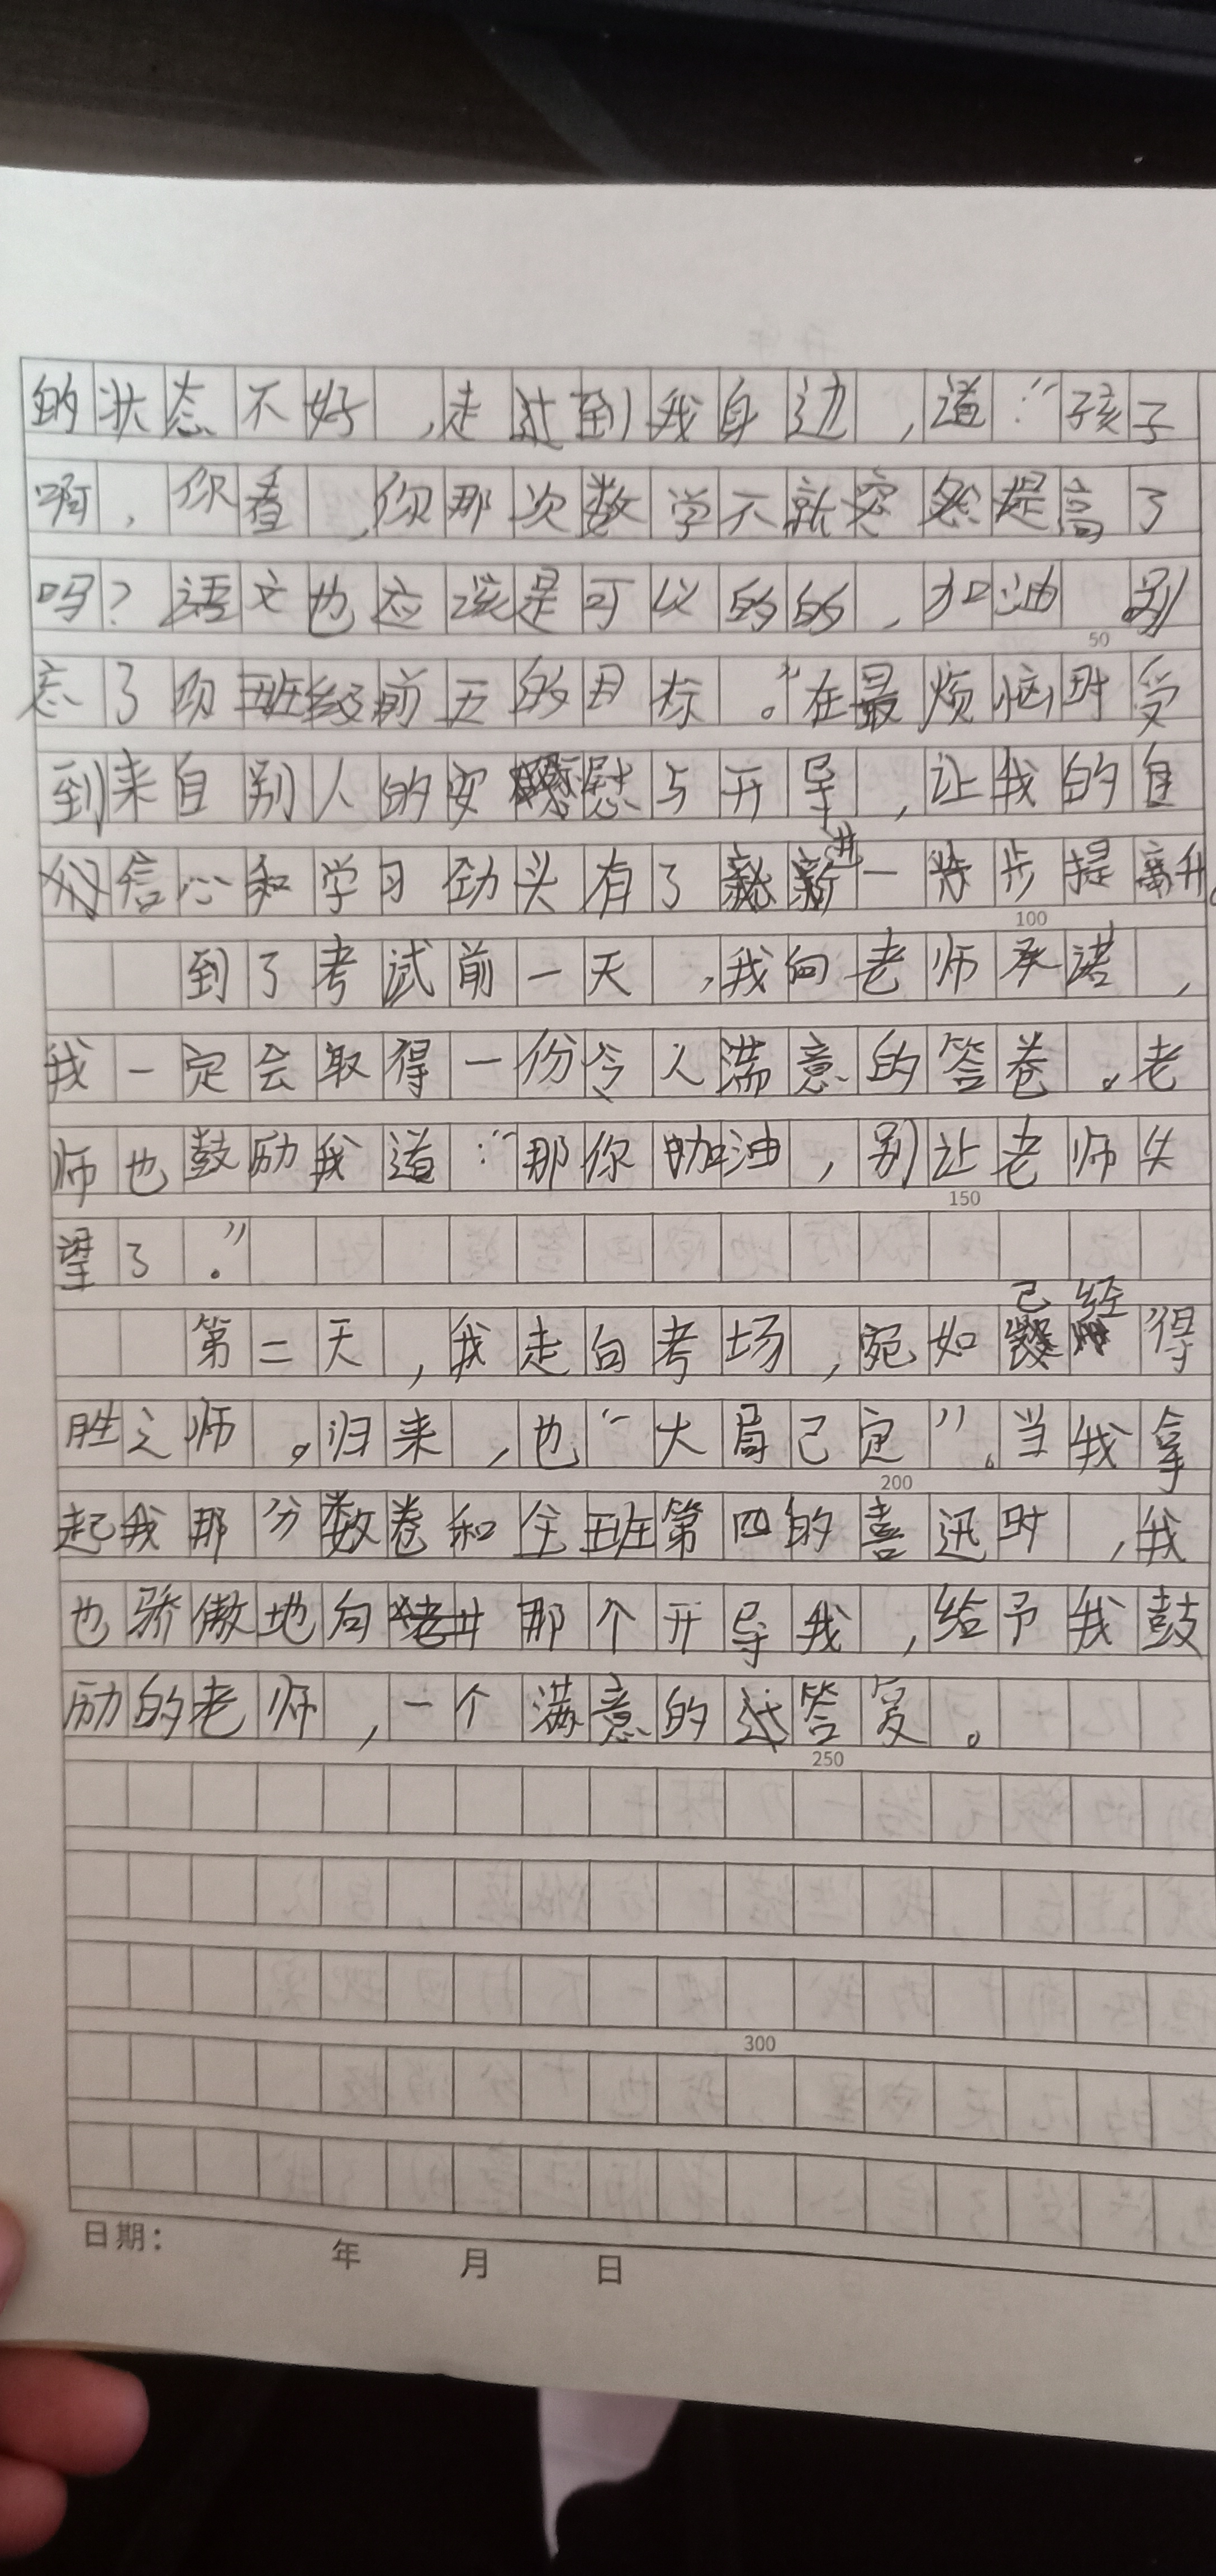 的状态不好,走过到我身边,道:“孩子
啊,你看,你那次数学不就突然提高了
吗?语文也应该是可以的的,加油 别
50
忘了你班级前五的目标。”在最烦恼时受
到来自别人的安慰与开导,让我的自
信心和学习劲头有了进一步提升。
100
到了考试前一天,我向老师承诺,
我一定会取得一份令人满意的答卷。老
师也鼓励我道:“那你加油,别让老师失
150
望了.”
第二天,我走向考场,宛如已经得
胜之师。归来,也“大局已定”。当我拿
200
起我那分数卷和全班第四的喜迅时,我
也骄傲地向那个开导我,给予我鼓
励的老师,一个满意的答复。
250
300
日期: 年 月 日